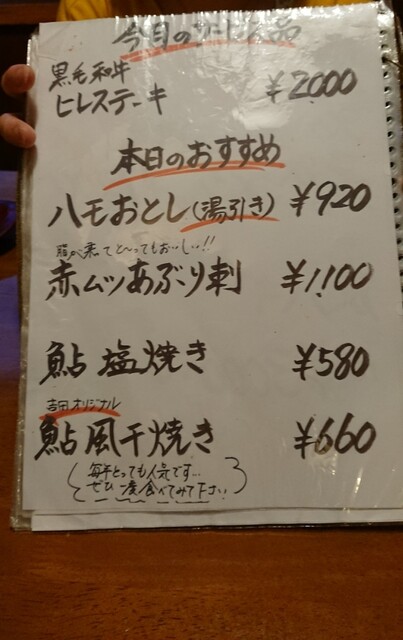 今月の
黒毛和牛
ヒレステーキ ¥2000
本日のおすすめ
ハモおとし(湯引き) ¥920
脂が乗ってと〜ってもおいしい!!
赤ムツあぶり刺 ¥1,100
鮎 塩焼き ¥580
吉田オリジナル
鮎風干焼き ¥660
毎年とっても人気です...
ぜひ一度食べてみて下さい